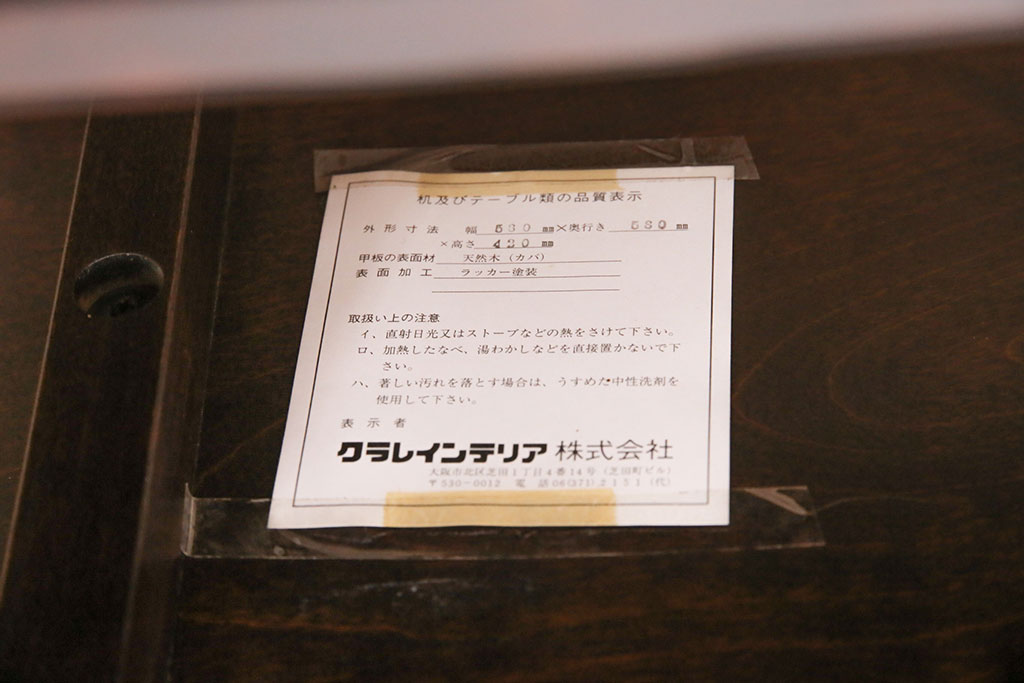 机及びテーブル類の品質表示
外形寸法 幅 530 mm×奥行き 580 mm
×高さ 420 mm
甲板の表面材 天然木（カバ）
表面加工 ラッカー塗装
取扱い上の注意
イ、直射日光又はストーブなどの熱をさけて下さい。
ロ、加熱したなべ、湯わかしなどを直接置かないで下
さい。
ハ、著しい汚れを落とす場合は、うすめた中性洗剤を
使用して下さい。
表示者
クラレインテリア株式会社
大阪市北区芝田1丁目4番14号（芝田町ビル）
〒530-0012 電話06(371)2151（代）